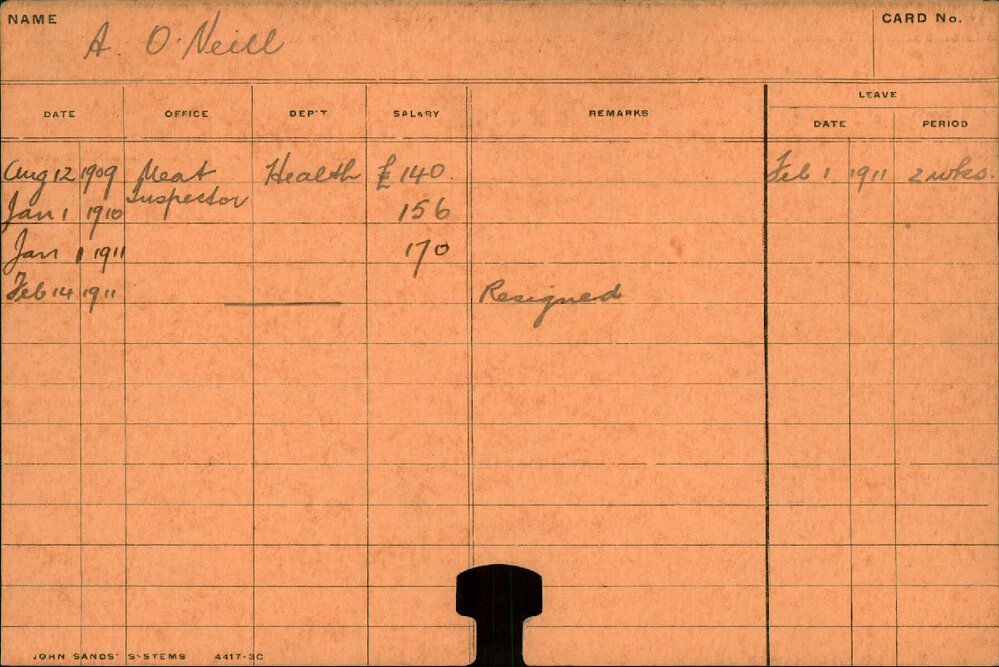 NAME A. O'Neill CARD No.
LEAVE
DATE OFFICE DEP'T SALARY REMARKS DATE PERIOD
Aug 12 1909 Meat Inspector Health £140. Feb 1 1911 2 wks.
Jan 1 1910 156
Jan 1 1911 170
Feb 14 1911 Resigned
JOHN SANDS' SYSTEMS 4417-3C